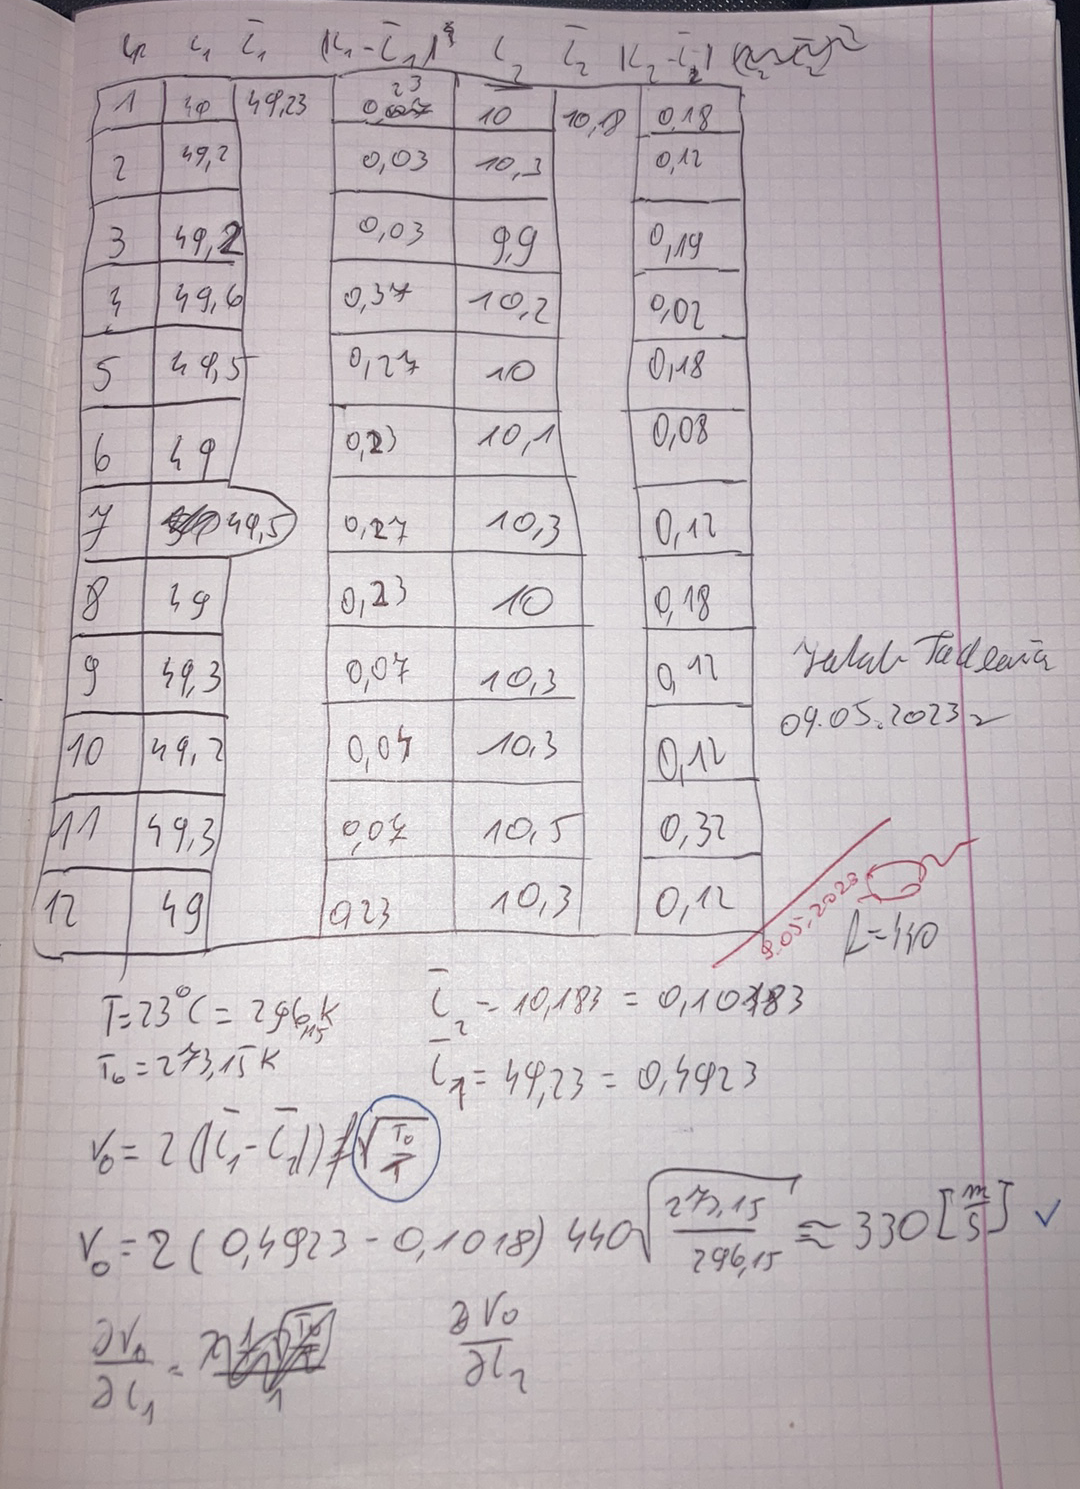 Lp l₁ l̄₁ |l₁-l̄₁| l₂ l̄₂ |l₂-l̄₂|
1 49 49,23 0,23 10 10,18 0,18
2 49,2 0,03 10,3 0,12
3 49,2 0,03 9,9 0,19
4 49,6 0,37 10,2 0,02
5 49,5 0,27 10 0,18
6 49 0,23 10,1 0,08
7 49,5 0,27 10,3 0,12
8 49 0,23 10 0,18
9 49,3 0,07 10,3 0,12
10 49,2 0,04 10,3 0,12
11 49,3 0,07 10,5 0,32
12 49 0,23 10,3 0,12
09.05.2023r
9.05.2023
f=440
T=23°C = 296,15K
T₀=273,15K
l̄₂ = 10,183 = 0,10183
l̄₁ = 49,23 = 0,4923
V₀ = 2(|l̄₁-l̄₂|) f √(T₀/T)
V₀ = 2(0,4923 - 0,1018) 440 √(273,15/296,15) ≈ 330 [m/s] ✓
∂V₀/∂l₁ = ∂V₀/∂l₂